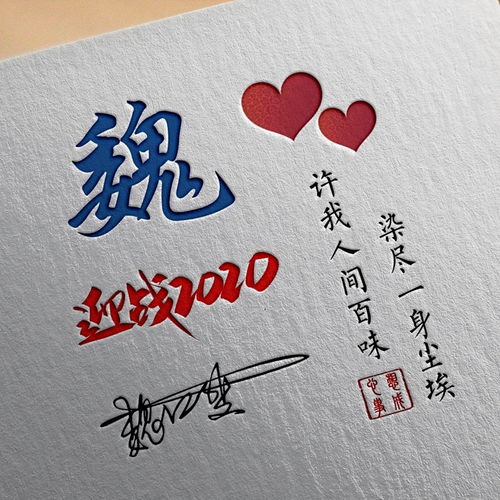 魏
迎战2020
染尽一身尘埃
许我人间百味
心想事成